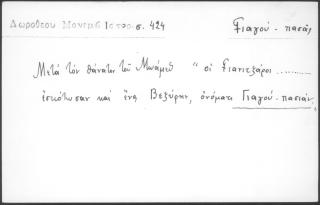 Δωροθεου Μονεμβ Ιστορ. σ. 424
Γιαγού - πασάς
Μετά τον θάνατον τοῦ Μωάμεθ " οἱ Γιανιτζάροι ............
ἐσκότωσαν καὶ ἕνα Βεζύρην, ὀνόματι Γιαγού-πασιάν,